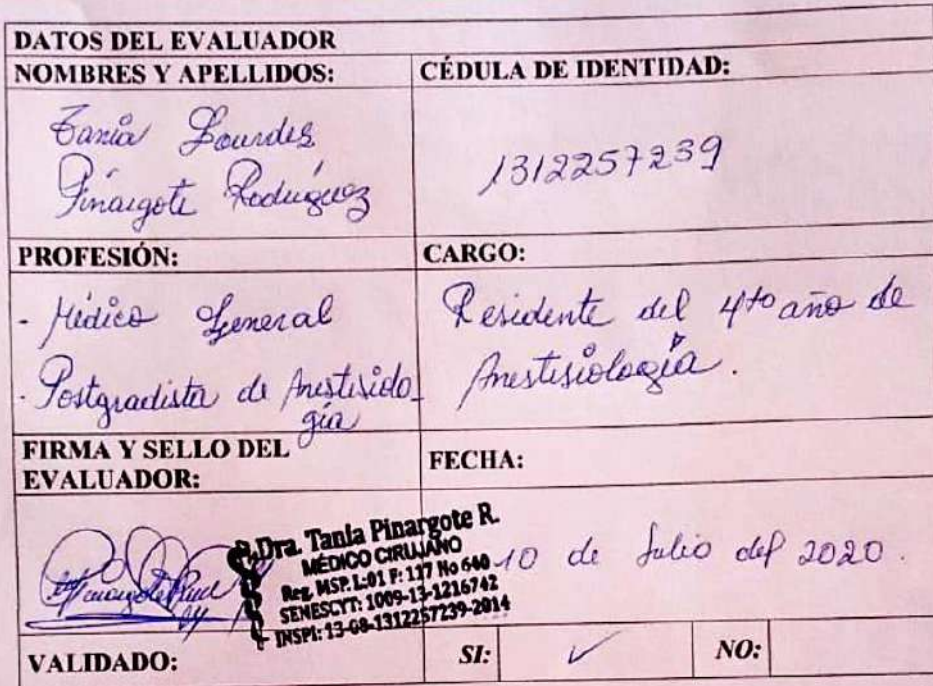 DATOS DEL EVALUADOR
NOMBRES Y APELLIDOS:
Tania Lourdes
Pinargote Rodríguez
CÉDULA DE IDENTIDAD:
1312257239
PROFESIÓN:
- Médico General
- Postgradista de Anestesiolo_
gía
CARGO:
Residente del 4to año de
Anestesiología.
FIRMA Y SELLO DEL
EVALUADOR:
Dra. Tania Pinargote R.
MÉDICO CIRUJANO
Reg. MSP. L:01 F: 117 No 640
SENESCYT: 1009-13-1216742
INSPI: 13-08-1312257239-2014
FECHA:
10 de Julio del 2020.
VALIDADO:
SI: ✓
NO: